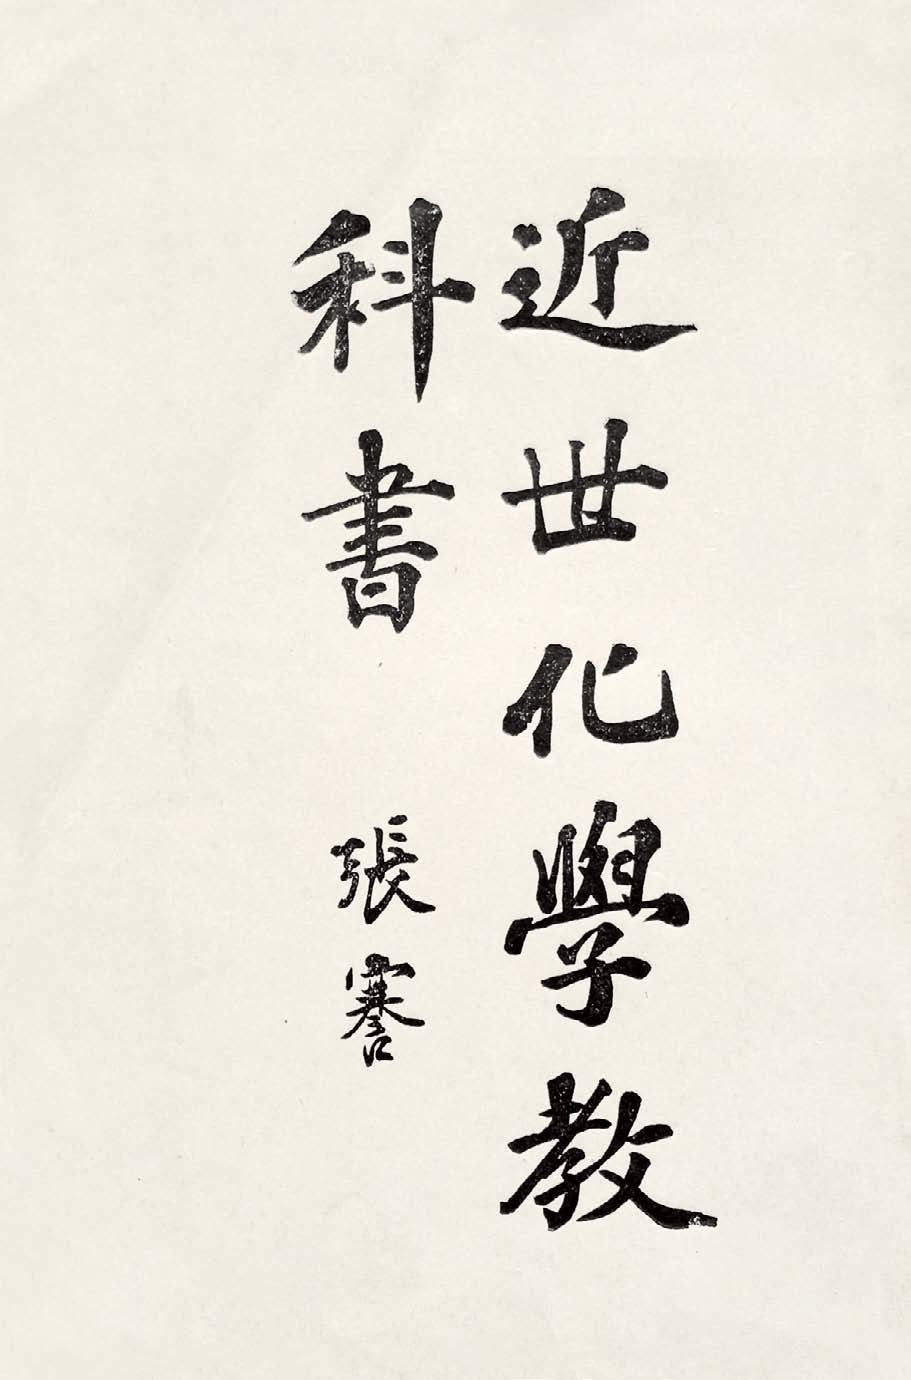 近世化學教
科書
張謇